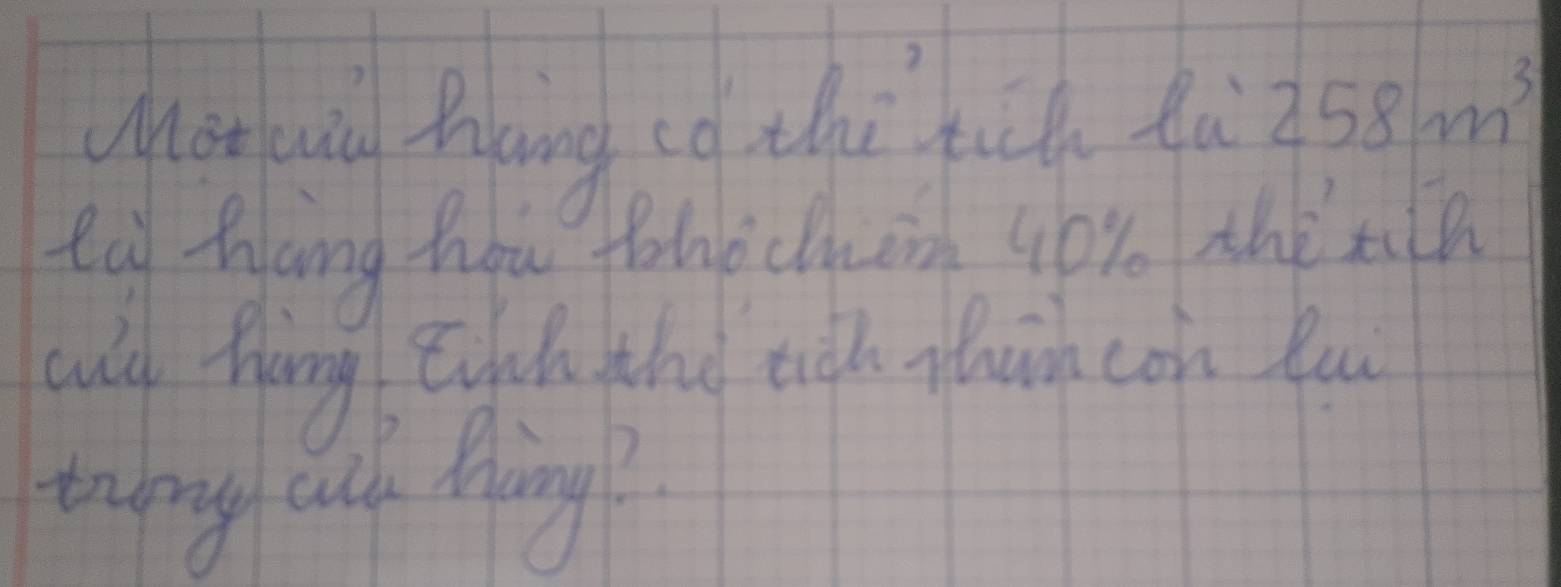 Một cửa hàng có thể tích là 258 m³
là hàng hóa khô chiếm 40% thể tích
cửa hàng. Tính thể tích phần còn lại
trong cửa hàng?